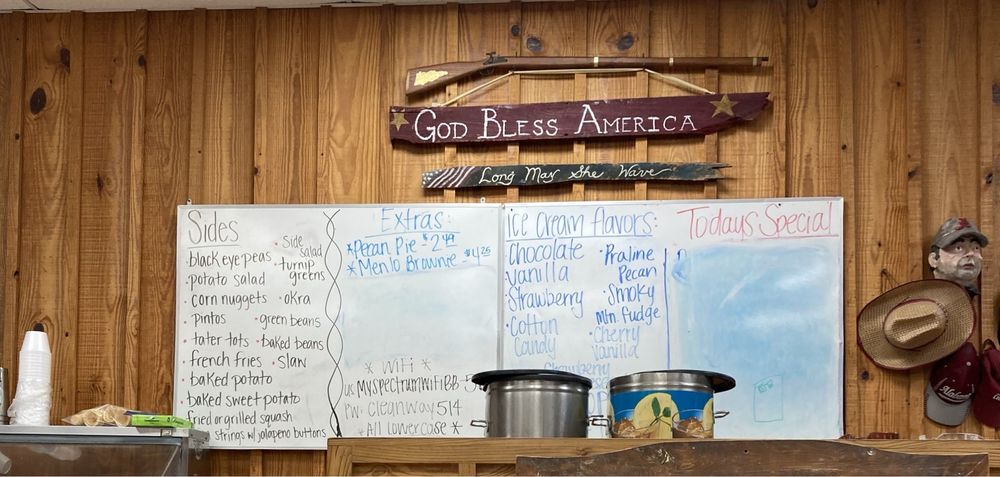 God Bless America
Long May She Wave
Sides
black eye peas
potato salad
corn nuggets
pintos
tater tots
french fries
baked potato
baked sweet potato
fried or grilled squash
strings w/ jalapeno buttons
• Side salad
• turnip greens
• okra
• green beans
• baked beans
• slaw
Extras:
*Pecan Pie - $2.49
*Menlo Brownie - $4.26
* WiFi *
MySpectrumWiFiBB-5
PW: cleanway514
*All lowercase*
Ice Cream flavors:
Chocolate
Vanilla
Strawberry
• Cotton
Candy
• Praline
Pecan
• Smoky
Mtn. Fudge
• Cherry
Vanilla
Strawberry
Todays Special